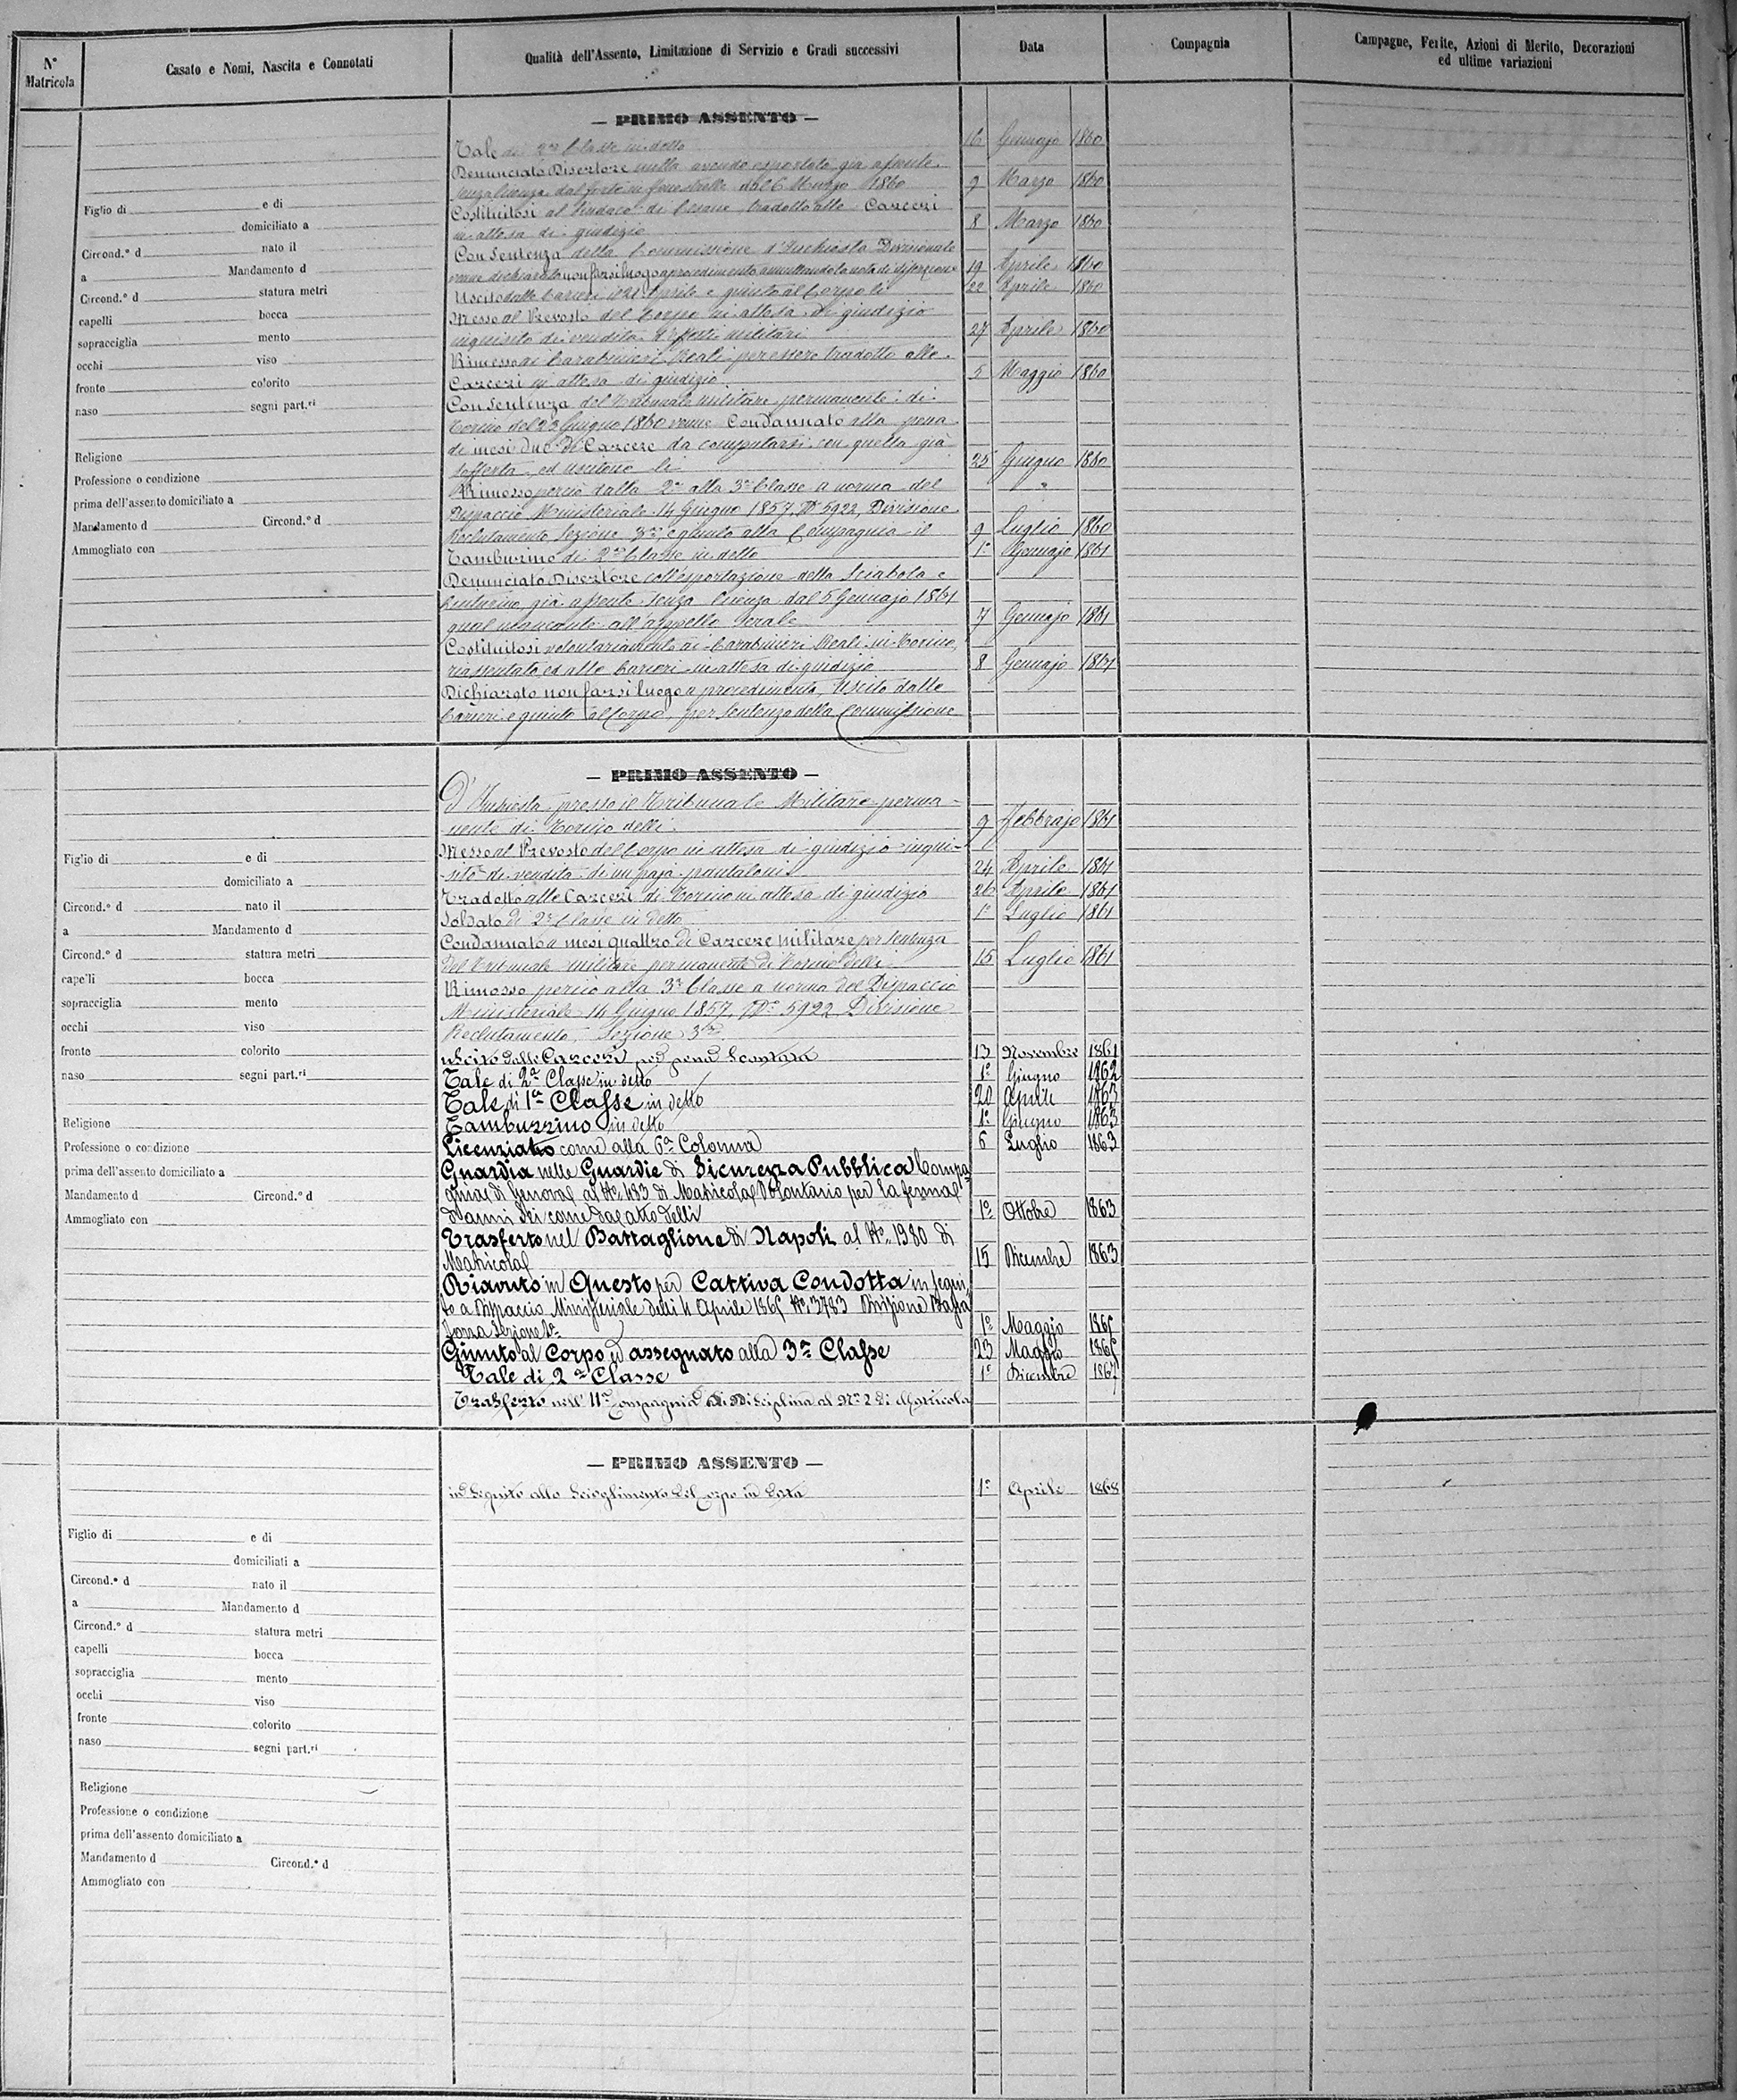 N° Matricola
Casato e Nomi, Nascita e Connotati
Qualità dell'Assento, Limitazione di Servizio e Gradi successivi
Data
Compagnia
Campagne, Ferite, Azioni di Merito, Decorazioni
ed ultime variazioni
— PRIMO ASSENTO —
Tale di 2ª Classe in detto 16 Gennajo 1860
Denunciato Disertore nulla avendo esportato già assente
senza licenza dal forte di fenestrelle dal 6 Marzo 1860 9 Marzo 1860
Costituitosi al Sindaco di Cesana, tradotto alle Carceri
in attesa di giudizio 8 Marzo 1860
Con Sentenza della Commissione d'Inchiesta Divisionale
venne dichiarato non farsi luogo a procedimento annullando la nota di diserzione 19 Aprile 1860
Uscito dalle Carceri il 21 Aprile e giunto al Corpo li 22 Aprile 1860
Messo al Prevosto del Corpo in attesa di giudizio
inquisito di vendita d'effetti militari 27 Aprile 1860
Rimesso ai Carabinieri Reali per essere tradotto alle
Carceri in attesa di giudizio 5 Maggio 1860
Con Sentenza del Tribunale militare permanente di
Torino del 23 Giugno 1860 venne Condannato alla pena
di mesi due di Carcere da computarsi con quella già
sofferta, ed uscitone li 25 Giugno 1860
Rimosso perciò dalla 2ª alla 3ª Classe a norma del "
Dispaccio Ministeriale 14 Giugno 1857, N° 5922, Divisione
Reclutamento Sezione 3ª, e giunto alla Compagnia il 9 Luglio 1860
Tamburino di 2ª Classe in detto 1° Gennajo 1861
Denunciato Disertore coll'esportazione della Sciabola e
Centurino già assente senza licenza dal 5 Gennajo 1861
qual mancante all'appello serale 7 Gennajo 1861
Costituitosi volontariamente ai Carabinieri Reali in Torino,
riassentato ed alle Carceri in attesa di giudizio 8 Gennajo 1861
Dichiarato non farsi luogo a procedimento, Uscito dalle
Carceri e giunto al Corpo, per sentenza della Commissione
Figlio di e di
domiciliato a
Circond.° d nato il
a Mandamento d
Circond.° d statura metri
capelli bocca
sopracciglia mento
occhi viso
fronte colorito
naso segni part.ri
Religione
Professione o condizione
prima dell'assento domiciliato a
Mandamento d Circond.° d
Ammogliato con
— PRIMO ASSENTO —
D'Inchiesta presso il Tribunale Militare perma-
nente di Torino delli 9 febbrajo 1861
Messo al Prevosto del Corpo in attesa di giudizio inqui-
sito di vendita di un pajo pantaloni 24 Aprile 1861
Tradotto alle Carceri di Torino in attesa di giudizio 26 Aprile 1861
Soldato di 2ª Classe in detto 1° Luglio 1861
Condannato a mesi quattro di Carcere militare per sentenza
del Tribunale militare permanente di Torino delli 15 Luglio 1861
Rimosso perciò alla 3ª Classe a norma del Dispaccio
Ministeriale 14 Giugno 1857, N° 5922 Divisione
Reclutamento, Sezione 3ª
uscito dalle Carceri per pena Scontata 13 Novembre 1861
Tale di 2ª Classe in detto 1° Giugno 1862
Tale di 1ª Classe in detto 20 Aprile 1863
Tamburrino in detto 1° Giugno 1863
Licenziato come alla 6ª Colonna 6 Luglio 1863
Guardia nelle Guardie di Sicurezza Pubblica Compa
gnia di Genova al N° 483 di Matricola Volontario per la ferma
d'anni Sei come dal atto delli 1° Ottobre 1863
Trasferto nel Battaglione di Napoli al N° 1980 di
Matricola 15 Dicembre 1863
Riavuto in Questo per Cattiva Condotta in segui
to a Dispaccio Ministeriale delli 11 Aprile 186 N° 3783 Divisione Bassa
forza Sezione 1ª 1° Maggio 186
Giunto al Corpo ed assegnato alla 3ª Classe 23 Maggio 186
Tale di 2ª Classe 1° Dicembre 1867
Trasferto nell'11ª Compagnia di Disciplina al N° 2 di Matricola
Figlio di e di
domiciliato a
Circond.° d nato il
a Mandamento d
Circond.° d statura metri
capelli bocca
sopracciglia mento
occhi viso
fronte colorito
naso segni part.ri
Religione
Professione o condizione
prima dell'assento domiciliato a
Mandamento d Circond.° d
Ammogliato con
— PRIMO ASSENTO —
in Seguito allo Scioglimento del Corpo in data 1° Aprile 1868
Figlio di e di
domiciliati a
Circond.° d nato il
a Mandamento d
Circond.° d statura metri
capelli bocca
sopracciglia mento
occhi viso
fronte colorito
naso segni part.ri
Religione
Professione o condizione
prima dell'assento domiciliato a
Mandamento d Circond.° d
Ammogliato con